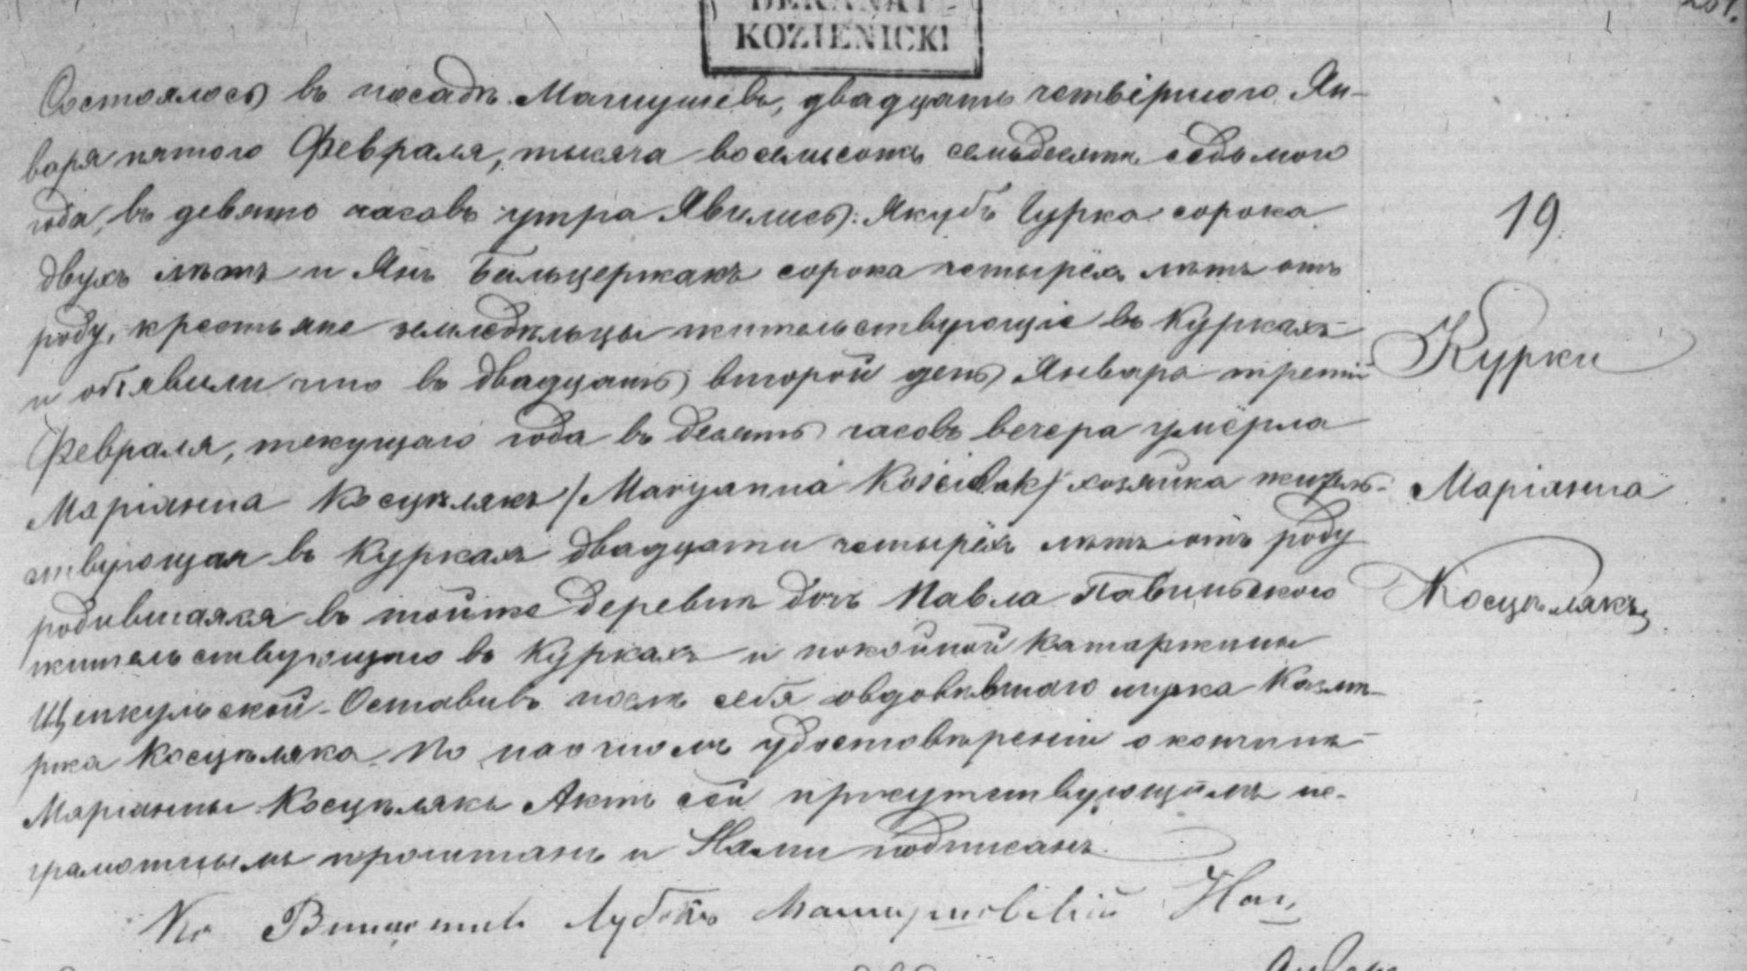 DEKANAT
KOZIENICKI
Состоялось въ посадѣ Магнушевѣ, двадцать четвертого Ян-
варя пятого Февраля, тысяча восемьсотъ семьдесятъ седьмого
года, въ девять часовъ утра. Явились: Якубъ Гурка сорока
двухъ лѣтъ и Янъ Бальцержакъ сорока четырёхъ лѣтъ отъ
роду, крестьяне земледѣльцы жительствующіе въ Куркахъ
и объявили что въ двадцать второй день Января третій
Февраля, текущаго года въ десять часовъ вечера умёрла
Маріянна Косцѣлякъ /Maryanna Kościelak/ хозяйка житель-
ствующая въ Куркахъ двадцати четырёхъ лѣтъ отъ роду
родившаяся въ тойже деревнѣ дочь Павла
жительствующаго въ Куркахъ и покойной Катаржины
Оставивъ послѣ себя овдовѣвшаго мужа Казимѣ-
ржа Косцѣляка. По настоящемъ удостовѣреніи о кончинѣ
Маріянны Косцѣлякъ Актъ сей присутствующимъ не-
грамотнымъ прочитанъ и Нами подписанъ.
19
Курки
Маріянна
Косцѣлякъ